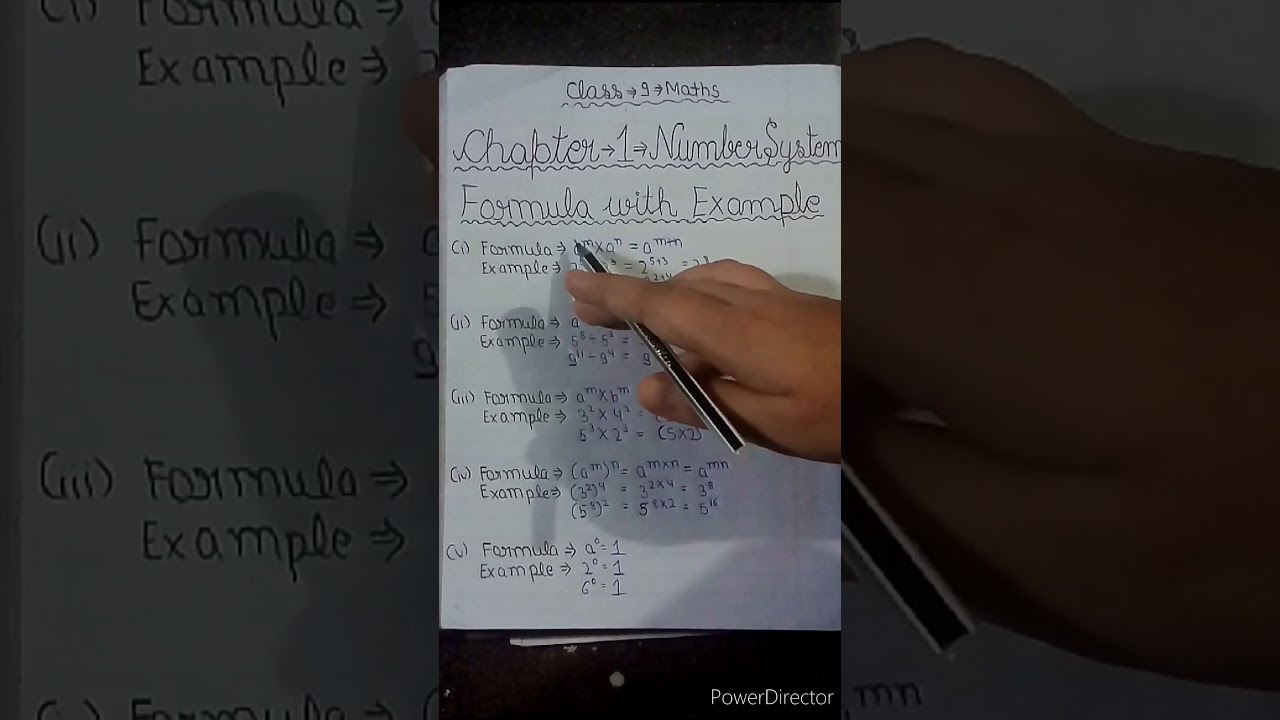 Class → 9 → Maths
Chapter → 1 ⇒ Number System
Formula with Example
(i) Formula ⇒ aᵐ × aⁿ = aᵐ⁺ⁿ
Example ⇒ = 2⁵⁺³ = 2⁸
(ii) Formula ⇒ a
Example ⇒ 5⁸ ÷ 5³ =
9¹¹ ÷ 9⁴ = 9
(iii) Formula ⇒ aᵐ × bᵐ
Example ⇒ 3² × 4² = (
5³ × 2³ = (5×2)
(iv) Formula ⇒ (aᵐ)ⁿ = aᵐˣⁿ = aᵐⁿ
Example ⇒ (3²)⁴ = 3²ˣ⁴ = 3⁸
(5⁸)² = 5⁸ˣ² = 5¹⁶
(v) Formula ⇒ a⁰ = 1
Example ⇒ 2⁰ = 1
6⁰ = 1
PowerDirector